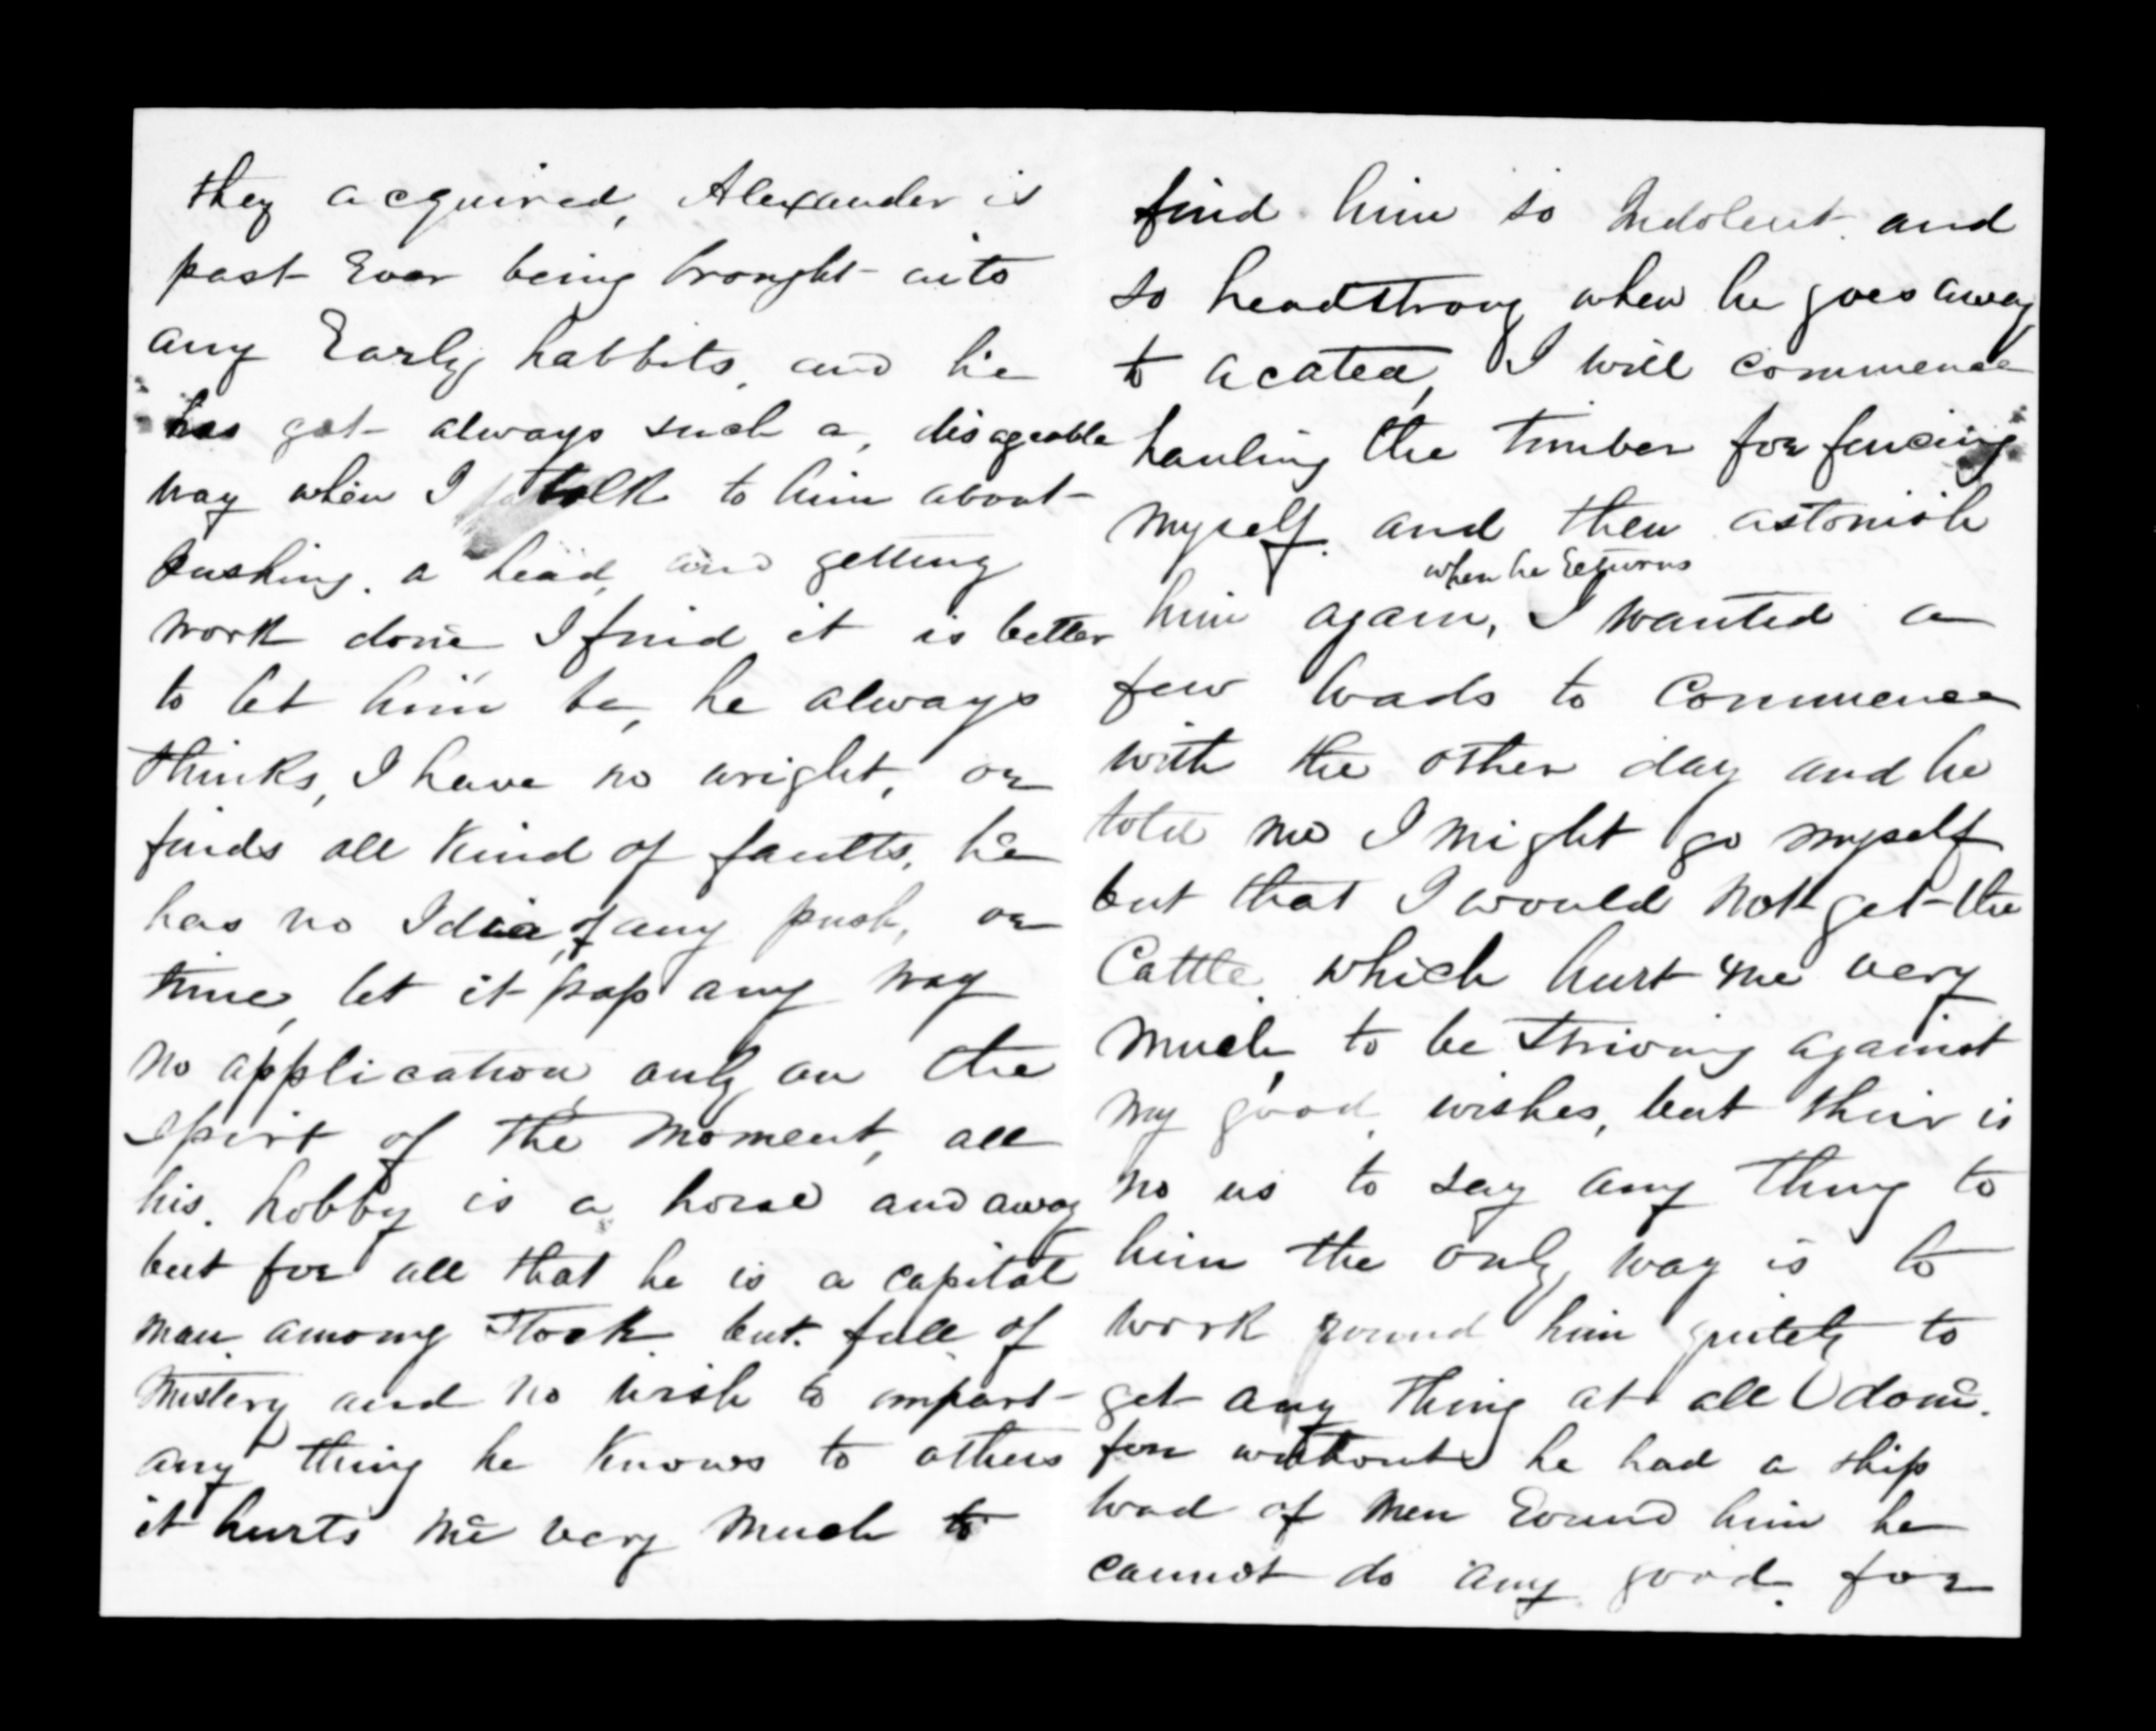 they acquired, Alexander is
past Ever being brought into
any Early habbits, and he
has got always such a, disageable
way when I talk to him about
pushing. a head, and getting
work done I find it is better
to let him be, he always
thinks, I have no wright, or
finds all Kind of faults, he
has no Idia, of any push, or
time, let it pass any way
no application, only on the
spirt of the moment, all
his. hobby is a horse and away
but for all that he is a capital
man. among stock. but. full of
mistery and no wish to impart
any thing he Knows to others
it hurts me very much to
find him so Indolent. and
so headstrong, when he goes away,
to acatea, I will commence
hauling the timber for fencing
myself. and then astonish
when he Returns
him again, I wanted a
few loads to Commence
with the other day and he
told me I might go myself
but that I would not get the
Cattle, which hurt me very
much, to be striving against
my good, wishes, but thir is
no us to say any thing to
him the only, way is to
work round him quitely to
get any thing at all done.
for without he had a ship
load of men Round him he
cannot do any good. for